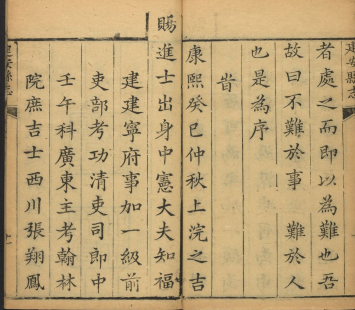 建安縣志
者處之而即以為難也吾
故曰不難於事　難於人
也是為序
旹
康熙癸巳仲秋上浣之吉
賜進士出身中憲大夫知福
建建寧府事加一級前
吏部考功清吏司郎中
壬午科廣東主考翰林
院庶吉士西川張翔鳳
建安縣志